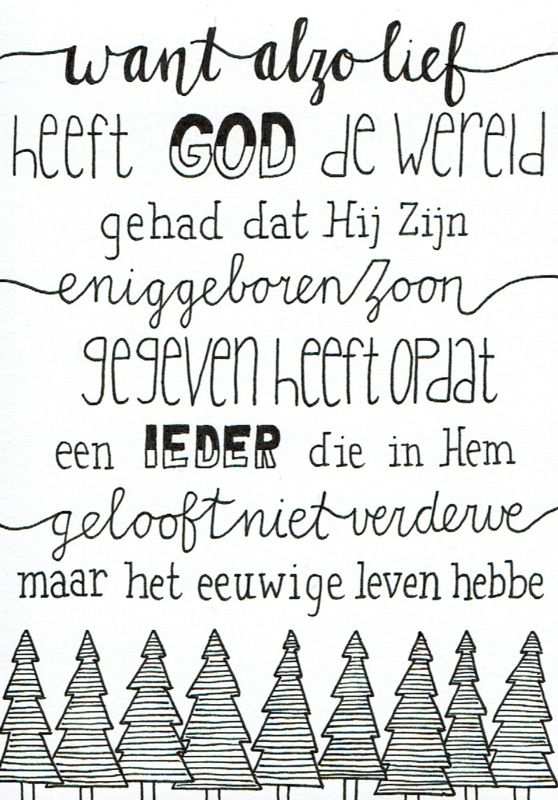 want alzo lief
heeft GOD de wereld
gehad dat Hij Zijn
eniggeboren Zoon
gegeven heeft opdat
een IEDER die in Hem
gelooft niet verderve
maar het eeuwige leven hebbe